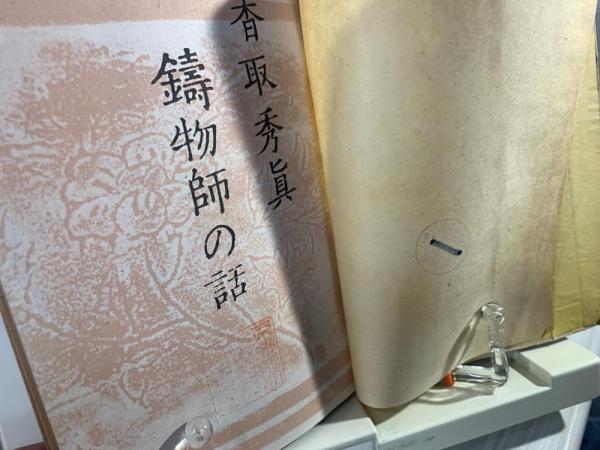 香取秀眞
鋳物師の話